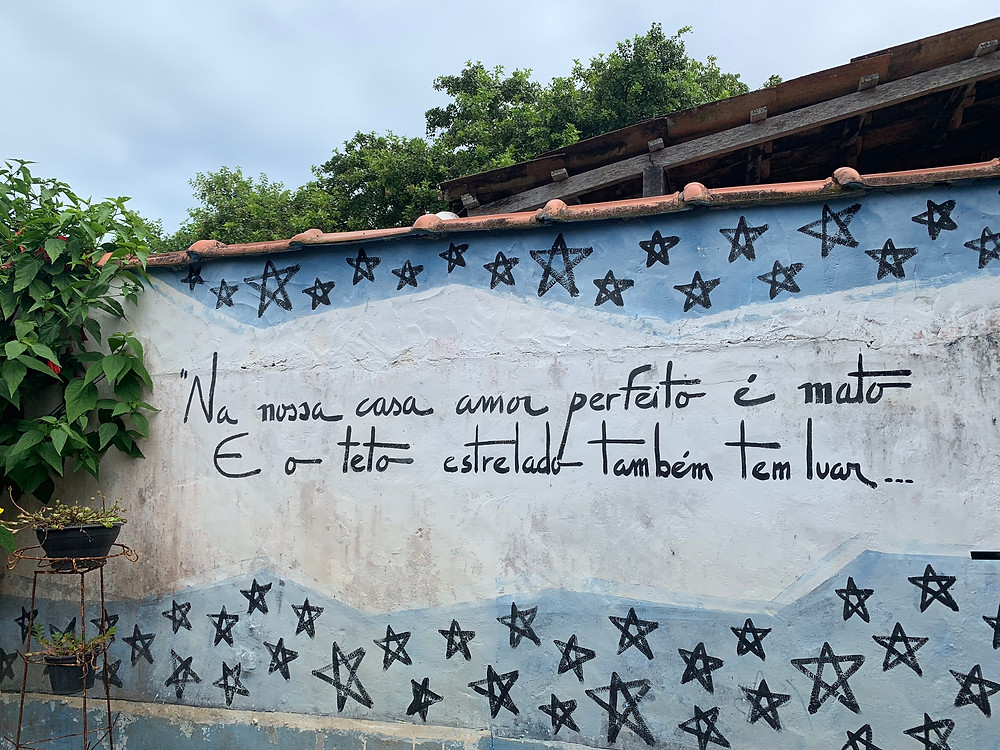 "Na nossa casa amor perfeito é mato
E o teto estrelado também tem luar...